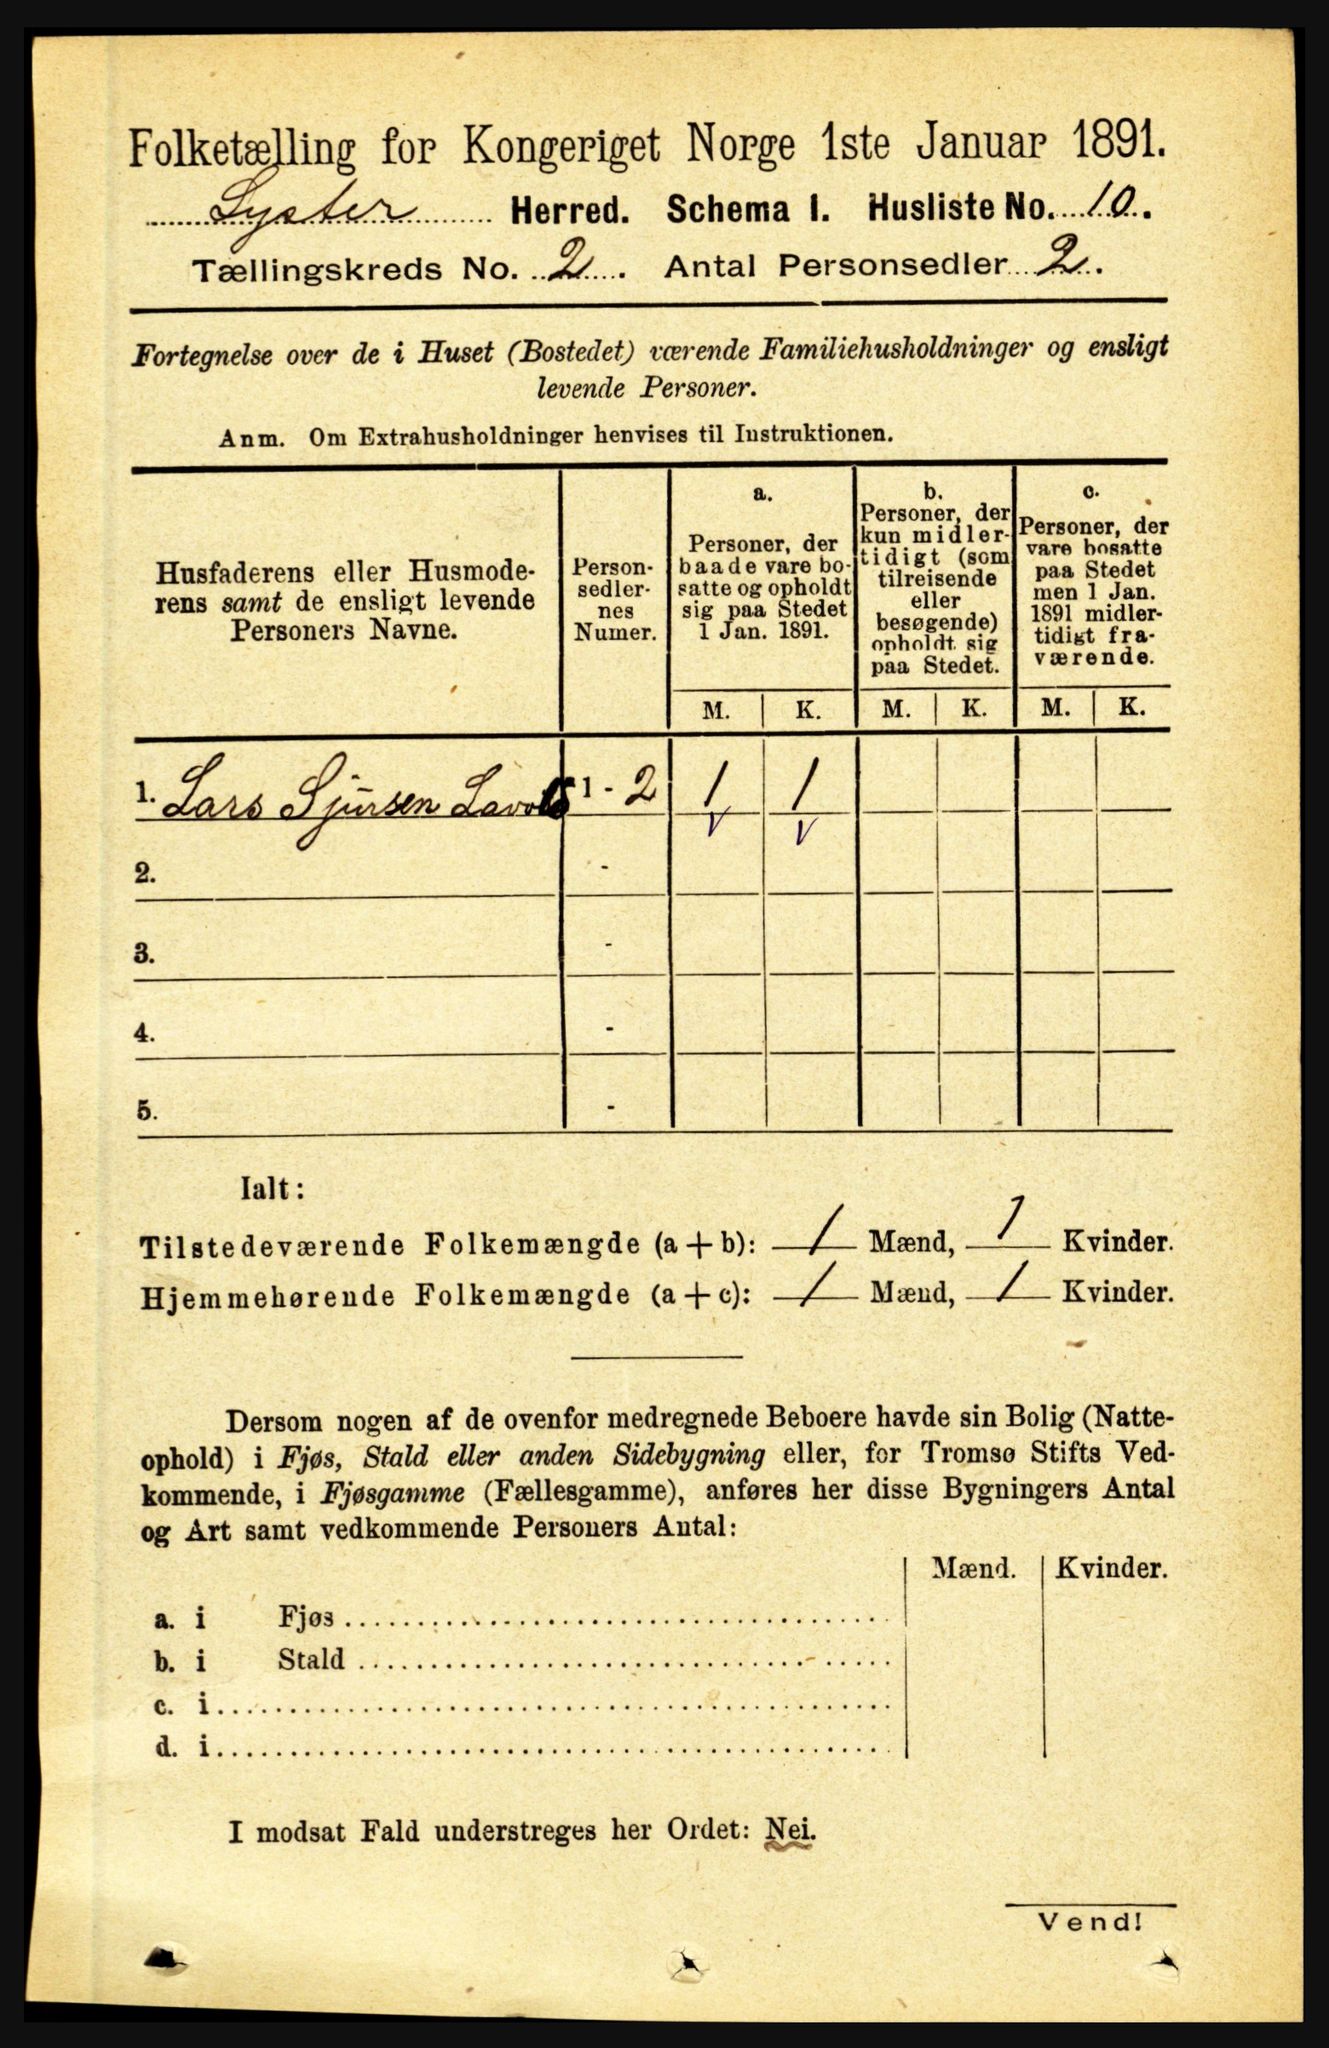 Folketælling for Kongeriget Norge 1ste Januar 1891.
Lyster Herred. Schema I. Husliste No. 10.
Tællingskreds No. 2. Antal Personsedler 2.
Fortegnelse over de i Huset (Bostedet) værende Familiehusholdninger og ensligt
levende Personer.
Anm. Om Extrahusholdninger henvises til Instruktionen.
Husfaderens eller Husmode-
rens samt de ensligt levende
Personers Navne.
Person-
sedler-
nes
Numer.
a.
Personer, der
baade vare bo-
satte og opholdt
sig paa Stedet
1 Jan. 1891.
b.
Personer, der
kun midler-
tidigt (som
tilreisende
eller
besøgende)
opholdt sig
paa Stedet.
c.
Personer, der
vare bosatte
paa Stedet
men 1 Jan.
1891 midler-
tidigt fra-
værende.
M. K. M. K. M. K.
1. Lars Sjursen 1 - 2 1 1
V V
2. -
3. -
4. -
5. -
Ialt:
Tilstedeværende Folkemængde (a + b): 1 Mænd, 1 Kvinder.
Hjemmehørende Folkemængde (a + c): 1 Mænd, 1 Kvinder.
Dersom nogen af de ovenfor medregnede Beboere havde sin Bolig (Natte-
ophold) i Fjøs, Stald eller anden Sidebygning eller, for Tromsø Stifts Ved-
kommende, i Fjøsgamme (Fællesgamme), anføres her disse Bygningers Antal
og Art samt vedkommende Personers Antal:
Mænd. Kvinder.
a. i Fjøs
b. i Stald
c. i
d. i
I modsat Fald understreges her Ordet: Nei.
Vend!